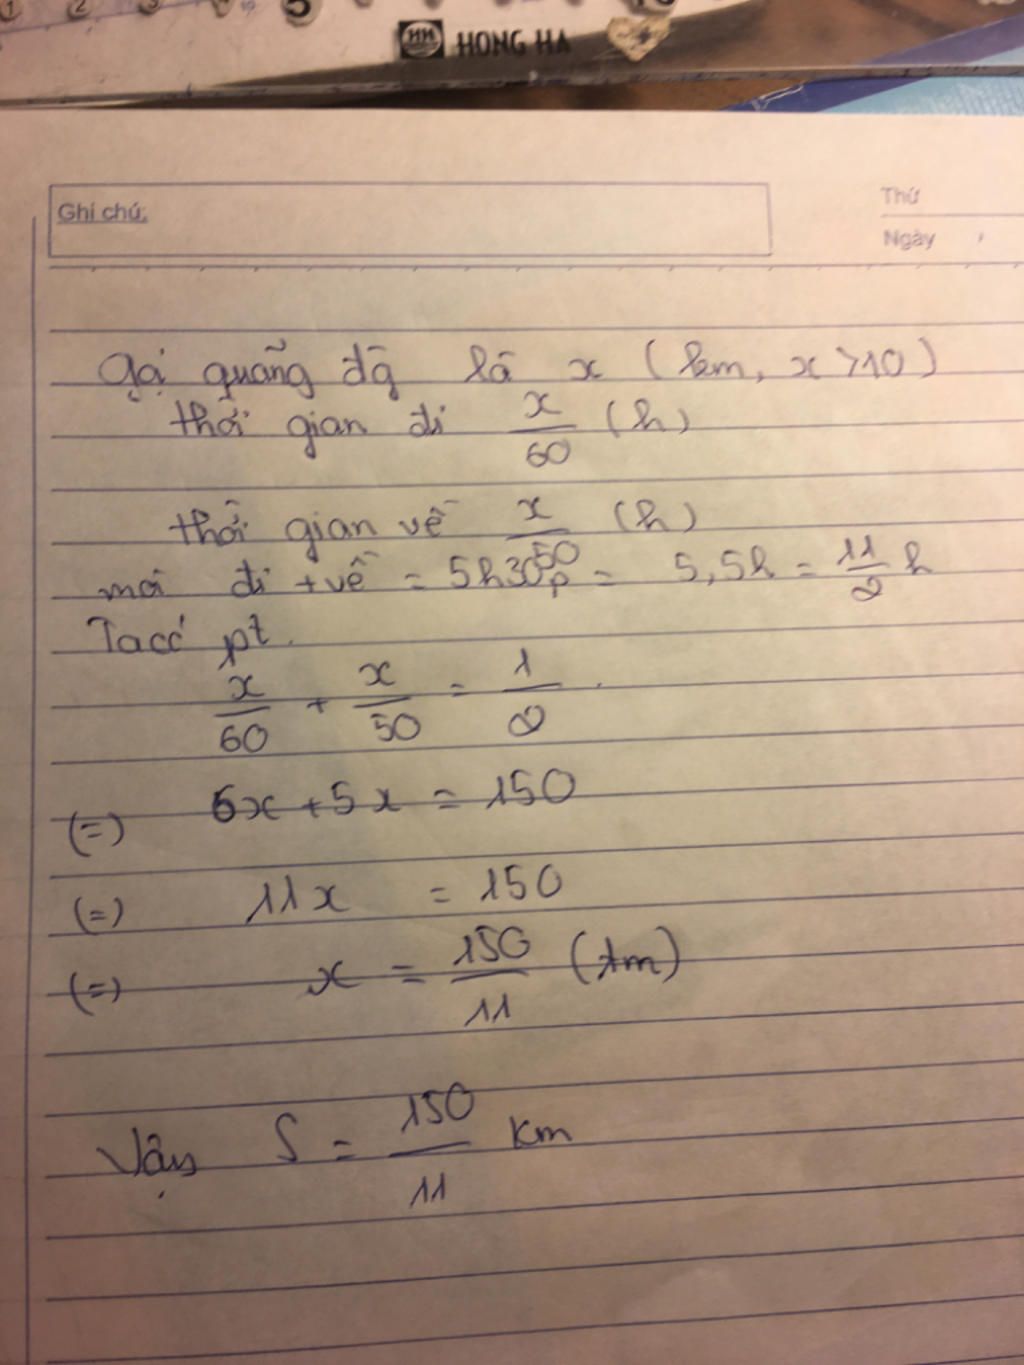 HH HONG HA
Ghi chú:
Thứ
Ngày
Gọi quãng đg là x (km, x > 10)
thời gian đi x/60 (h)
thời gian về x/50 (h)
mà đi + về = 5h30p = 5,5h = 11/2 h
Ta có pt.
x/60 + x/50 = 1/2
(=) 6x + 5x = 150
(=) 11x = 150
(=) x = 150/11 (km)
Vậy S = 150/11 km